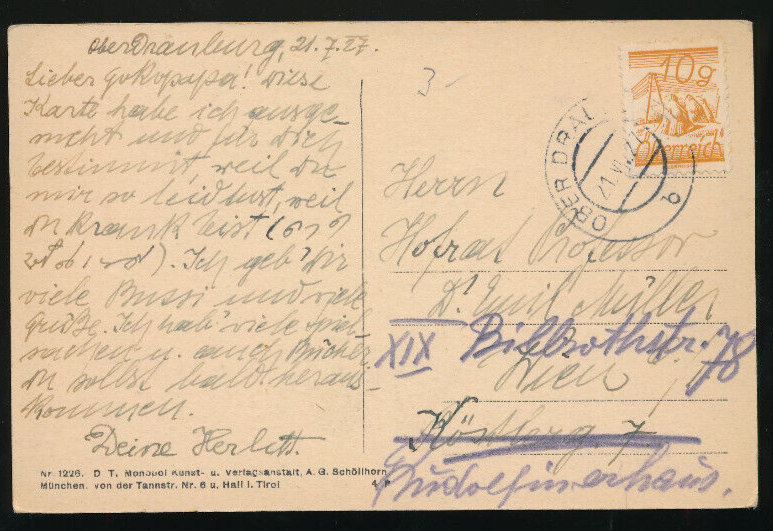 Oberdrauburg, 21.7.27.
Lieber Gokopapa! Diese
Karte habe ich ausge-
sucht und für Dich
bestimmt, weil Du
mir so leid tust, weil
Du krank bist (
). Ich geb' Dir
viele Bussi und viele
Grüße. Ich hab' viele Spiel-
sachen u. auch Bücher.
Du sollst bald heraus-
kommen.
Deine
Nr. 1226. D. T. Monopol Kunst- u. Verlagsanstalt, A. G. Schöllhorn
München. von der Tannstr. Nr. 6 u. Hall i. Tirol
3-
10g
Österreich
OBER DRAU
b
Herrn
Hofrat Professor
Dr. Emil Müller
XIX Billrothstr. 78
Wien
7
Rudolfinerhaus.